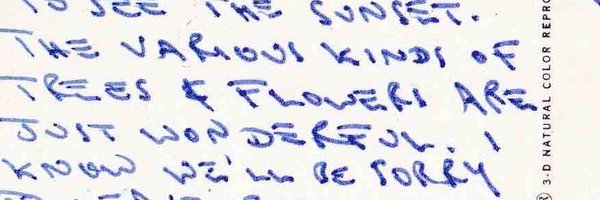 TO SEE THE SUNSET.
THE VARIOUS KINDS OF
TREES & FLOWERS ARE
JUST WONDERFUL. I
KNOW WE'LL BE SORRY
® 3-D NATURAL COLOR REPRO